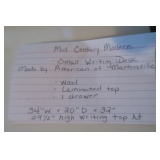 Mid Century Modern
Small Writing Desk
Made by: American of Martinsville
· Wood
· Laminated top
· 1 drawer
34"w x 20"b x 32"
29½" high writing top ht